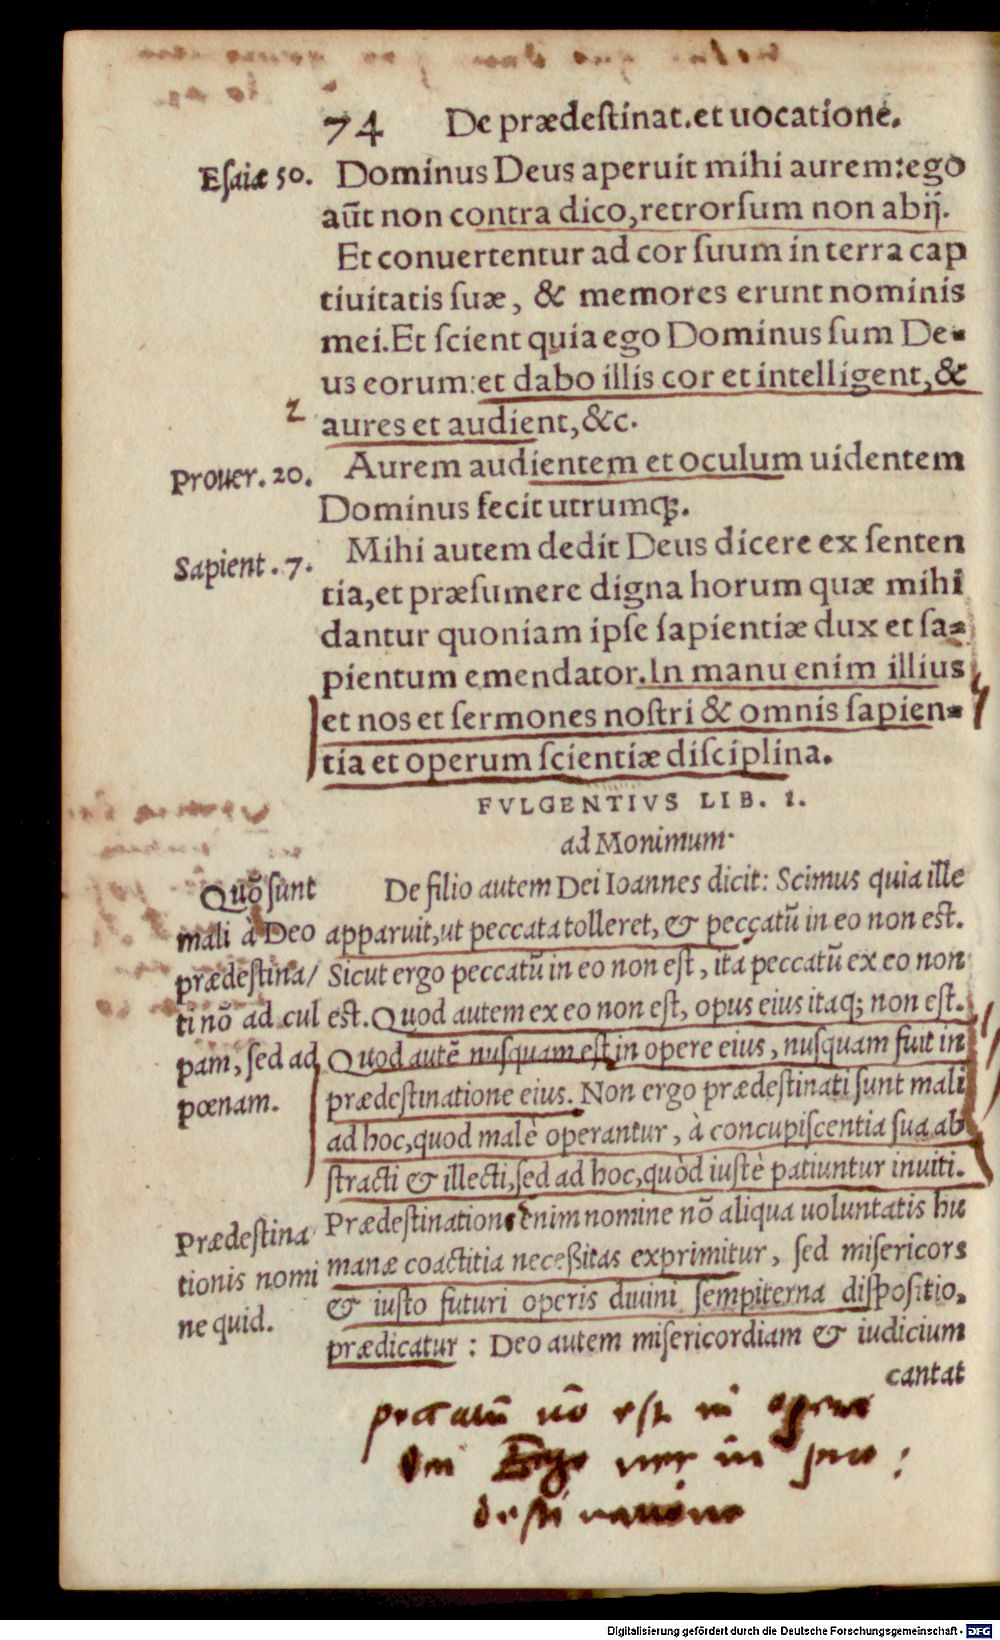 74 De prædestinat.et uocatione.
Esaiæ 50. Dominus Deus aperuit mihi aurem:ego
aūt non contra dico,retrorsum non abij.
Et conuertentur ad cor suum in terra cap
tiuitatis suæ, & memores erunt nominis
mei.Et scient quia ego Dominus sum De-
us eorum:et dabo illis cor et intelligent,&
2 aures et audient,&c.
Prouer. 20. Aurem audientem et oculum uidentem
Dominus fecit utrumq́;.
Sapient. 7. Mihi autem dedit Deus dicere ex senten
tia,et præsumere digna horum quæ mihi
dantur quoniam ipse sapientiæ dux et sa-
pientum emendator.In manu enim illius
et nos et sermones nostri & omnis sapien-
tia et operum scientiæ disciplina.
FVLGENTIVS LIB. 1.
ad Monimum.
Quō sunt
mali à Deo
prædestina/
ti nō ad cul
pam, sed ad
pœnam.
De filio autem Dei Ioannes dicit: Scimus quia ille
apparuit,ut peccata tolleret, & peccatū in eo non est.
Sicut ergo peccatū in eo non est, ita peccatū ex eo non
est.Quod autem ex eo non est, opus eius itaq; non est.
Quod autē nusquam est in opere eius, nusquam fuit in
prædestinatione eius. Non ergo prædestinati sunt mali
ad hoc,quod malè operantur, à concupiscentia sua ab
stracti & illecti,sed ad hoc,quòd iustè patiuntur inuiti.
Prædestina
tionis nomi
ne quid.
Prædestinationis enim nomine nō aliqua uoluntatis hu
manæ coactitia necessitas exprimitur, sed misericors
& iusto futuri operis diuini sempiterna dispositio,
prædicatur : Deo autem misericordiam & iudicium
cantat
peccatū nō est in opere
Dei Ergo nec in pre:
destinatione
Digitalisierung gefördert durch die Deutsche Forschungsgemeinschaft - DFG